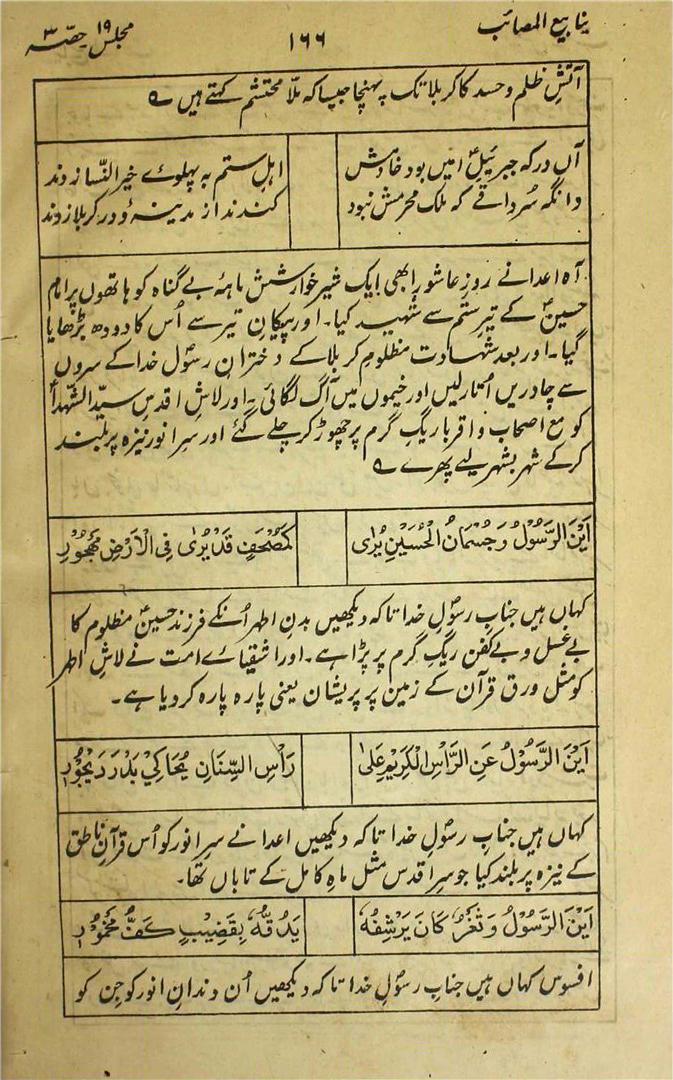 ینابیع المصائب
۱۶۶
مجلس ۱۹ حصہ ۳
آتشِ ظلم و حسد کا کربلا تک پہنچا جیسا کہ ملّا محتشم کہتے ہیں ؎
آں در کہ جبرئیلِ امیں بود خادمش اہلِ ستم بہ پہلوے خیر النّسا زدند
وانگہ سُرادقے کہ ملک محرمش نبود کندند از مدینہ و در کربلا زدند
آہ اعدا نے روزِ عاشورا بھی ایک شیرخوار شش ماہۂ بے گناہ کو ہاتھوں پر امام
حسینؑ کے تیرِ ستم سے شہید کیا۔ اور پیکانِ تیر سے اُس کا دودھ بڑھایا
گیا۔ اور بعد شہادت مظلومِ کربلا کے دخترانِ رسولؐ خدا کے سروں
سے چادریں اُتار لیں اور خیموں میں آگ لگائی۔ اور لاشِ اقدس سیّد الشہداؑ
کو مع اصحاب و اقربا ریگِ گرم پر چھوڑ کر چلے گئے اور سرِ انور نیزہ پر بلند
کر کے شہر بشہر لیے پھرے ؎
اَیْنَ الرَّسُوْلُ وَجُسْمَانُ الْحُسَیْنِ یُرٰی کَمَصْحَفٍ قَدْ یُرٰی فِی الْاَرْضِ مَھْجُوْرٖ
کہاں ہیں جنابِ رسولؐ خدا تا کہ دیکھیں بدنِ اطہر اُنکے فرزند حسینؑ مظلوم کا
بے غسل و بے کفن ریگِ گرم پر پڑا ہے۔ اور اشقیاے امت نے لاشِ اطہر
کو مثل ورقِ قرآن کے زمین پر پریشان یعنی پارہ پارہ کر دیا ہے۔
اَیْنَ الرَّسُوْلُ عَنِ الرَّاْسِ الْکَرِیْمِ عَلیٰ رَاْسِ السِّنَانِ یُحَاکِیْ بَدْرَ دَیْجُوْرٖ
کہاں ہیں جنابِ رسولؐ خدا تا کہ دیکھیں اعدا نے سرِ انور کو اُس قرآنِ ناطق
کے نیزہ پر بلند کیا جو سرِ اقدس مثل ماہِ کامل کے تاباں تھا۔
اَیْنَ الرَّسُوْلُ وَثَغْرٌ کَانَ یَرْشِفُہٗ یَدُقُّہٗ بِقَضِیْبٍ کَفُّ مَخْمُوْرٖ
افسوس کہاں ہیں جنابِ رسولؐ خدا تا کہ دیکھیں اُن دندانِ انور کو جن کو